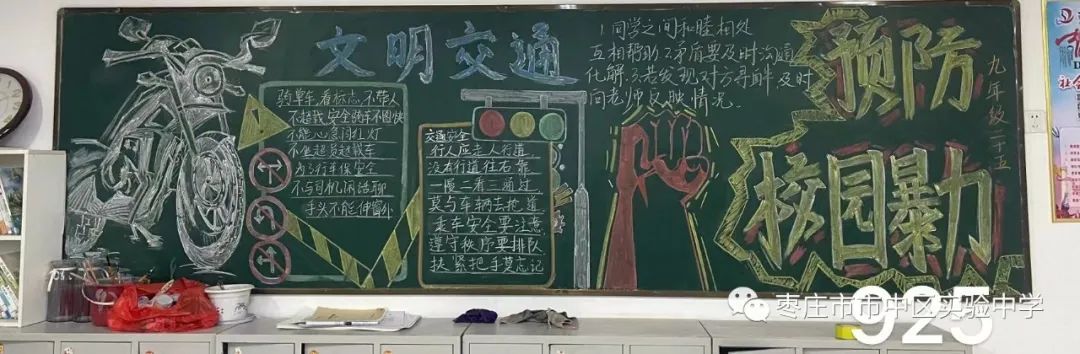 文明交通
骑单车,看标志,不带人
不超载,安全骑车不图快
不能心急闯红灯
不坐超员超载车
不与司机闲话聊
手头不能伸窗外
交通安全
行人应走人行道,
没有行道往右靠
一慢二看三通过,
莫与车辆去抢道
走车安全要注意
遵守秩序要排队
扶紧把手莫忘记
1.同学之间和睦相处
互相帮助2.矛盾要及时沟通
化解.3.若发现对方寻衅,及时
向老师反映情况。
预防
校园暴力
九年级二十五
枣庄市市中区实验中学
925